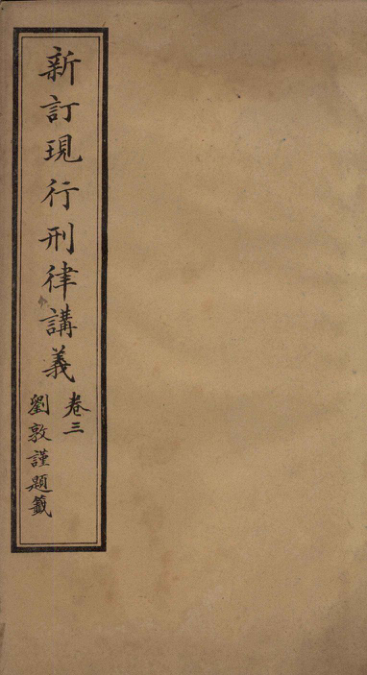 新訂現行刑律講義
卷三
劉敦謹題籤